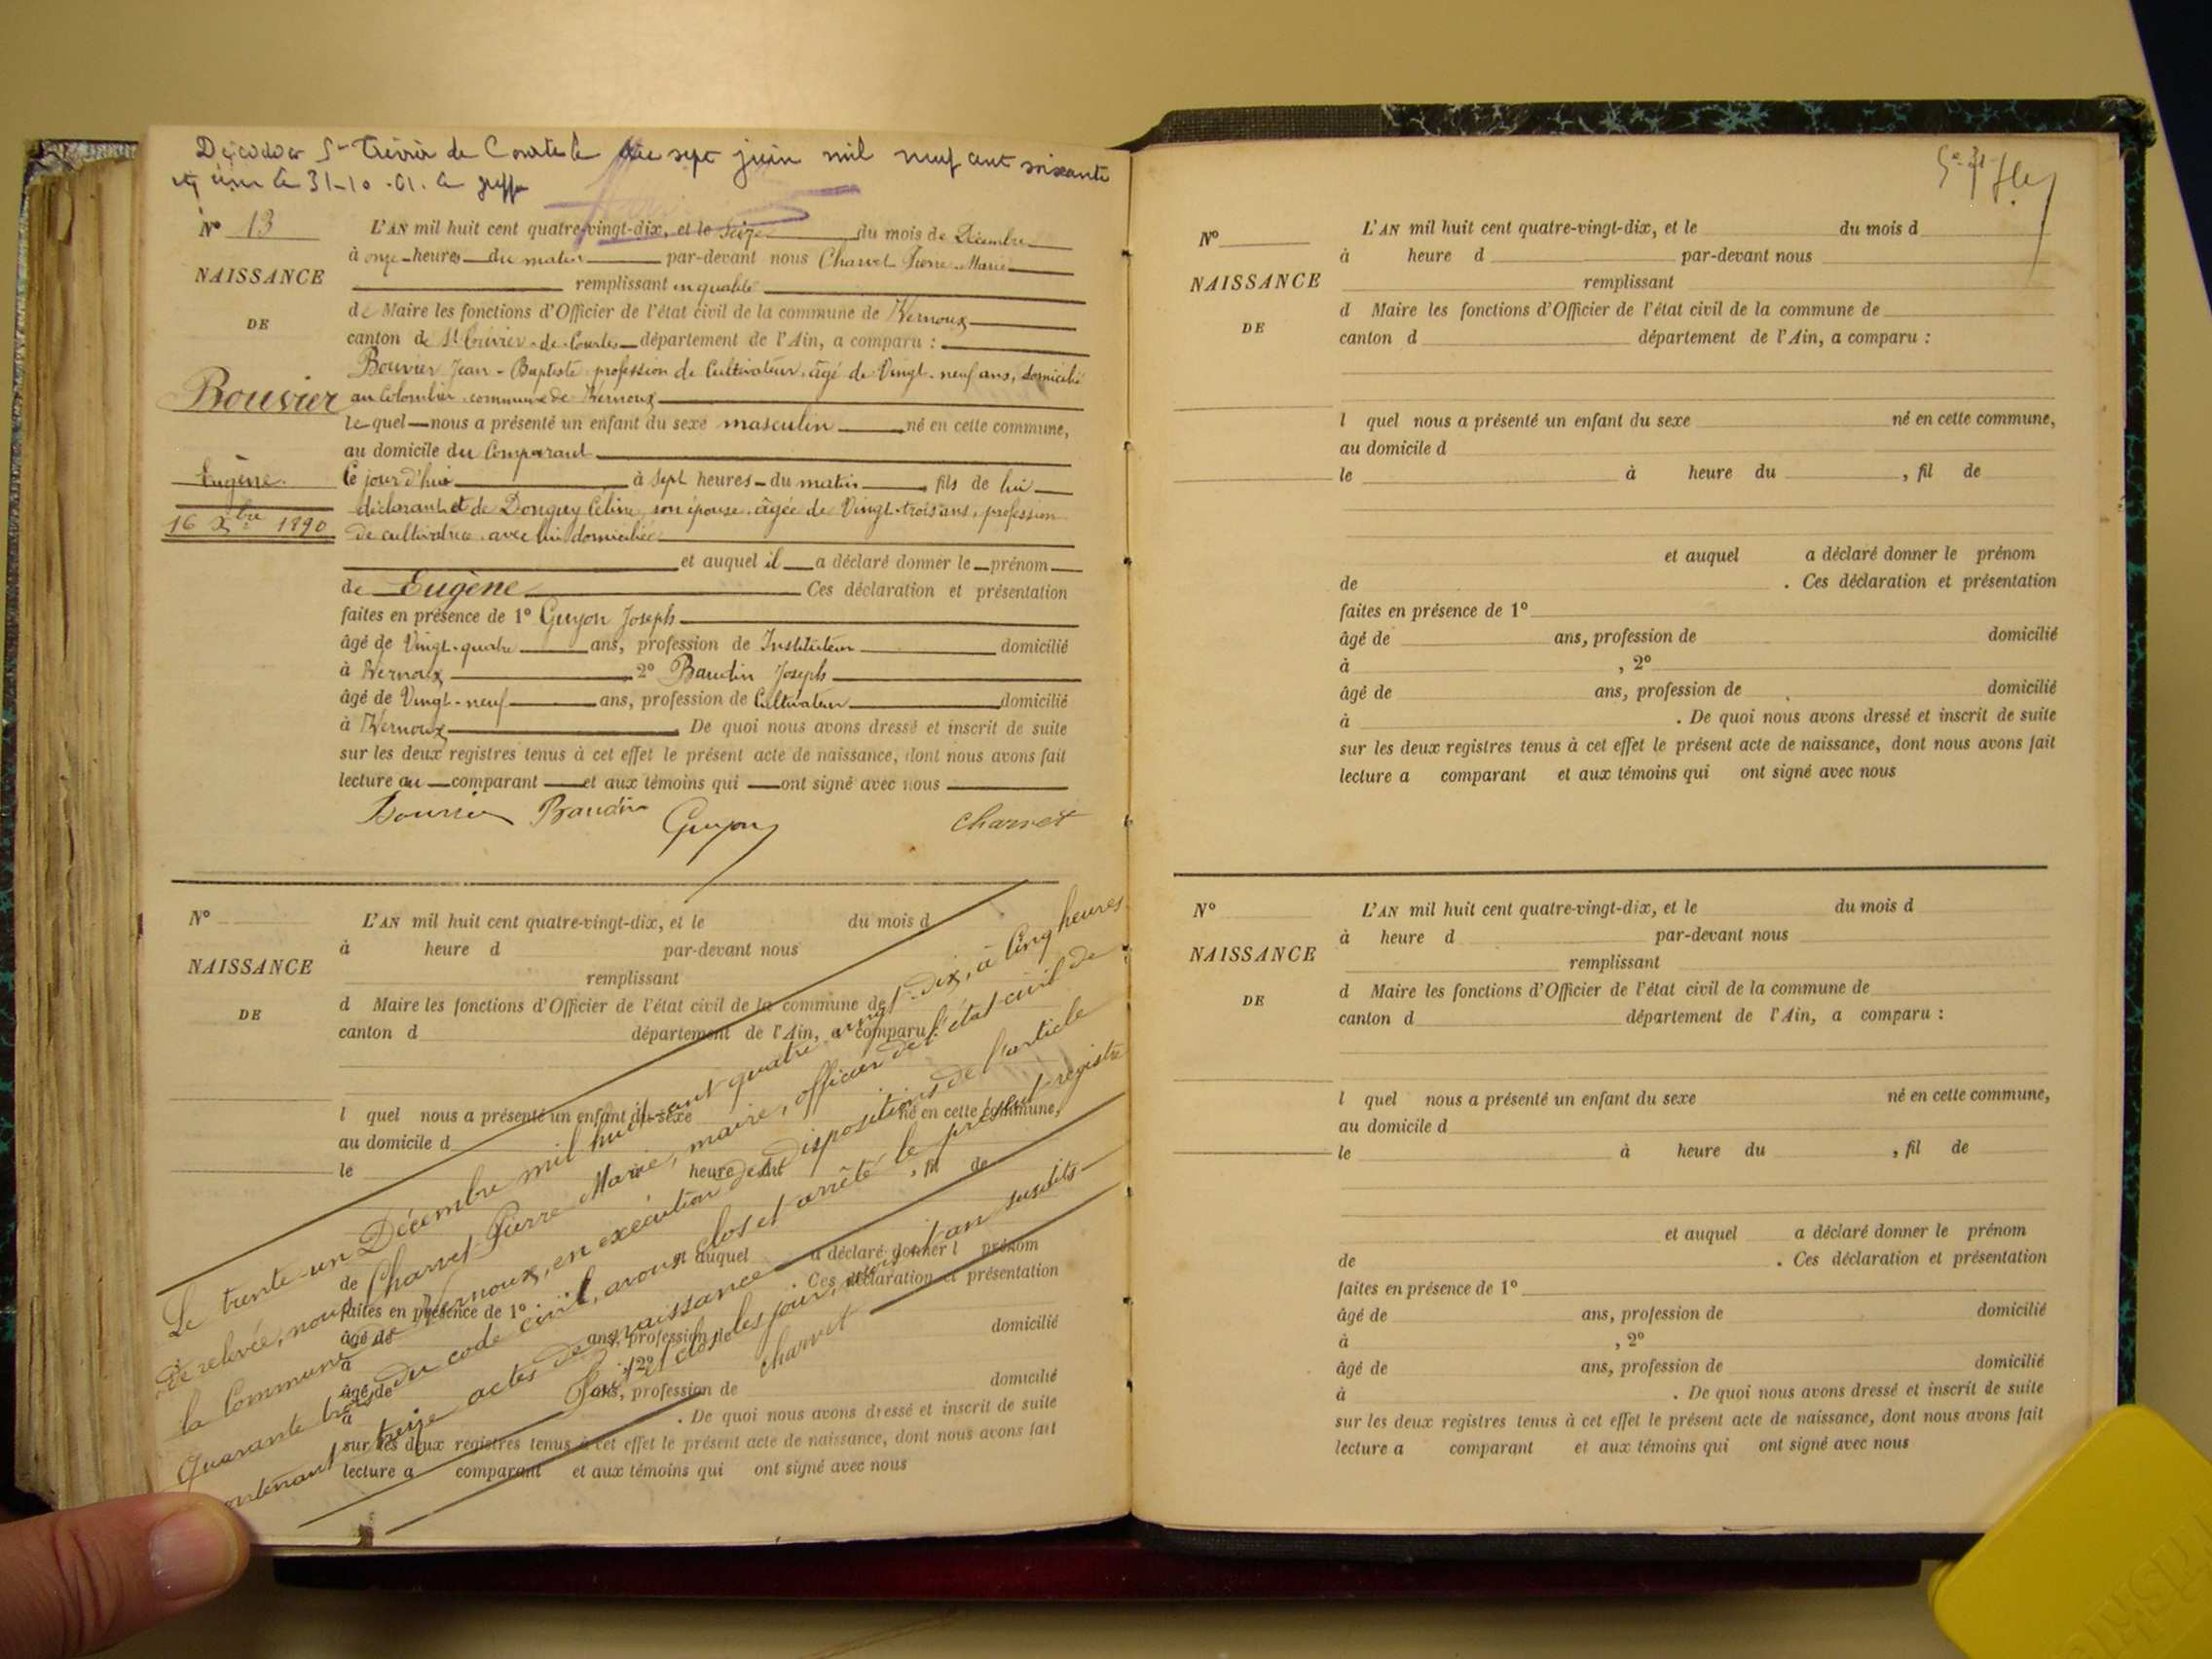 Décédé à St Trivier de Courtes le sept juin mil neuf cent soixante
et un le 31-10-61. Le greffier
N° 13
NAISSANCE
DE
Bouvier
Eugène
16 Xbre 1890
L'AN mil huit cent quatre-vingt-dix, et le Seize du mois de Décembre
à onze heures du matin par-devant nous Charvet Pierre-Marie
remplissant en qualité
de Maire les fonctions d'Officier de l'état civil de la commune de Vernoux
canton de St Trivier-de-Courtes département de l'Ain, a comparu :
Bouvier Jean-Baptiste profession de Cultivateur, âgé de Vingt-neuf ans, domicilié
au Colombier commune de Vernoux
lequel nous a présenté un enfant du sexe masculin né en cette commune,
au domicile du Comparant
ce jour d'hui à sept heures du matin, fils de lui
déclarant et de Donguy Céline, son épouse, âgée de Vingt-trois ans, profession
de cultivatrice avec lui domiciliée
et auquel il a déclaré donner le prénom
de Eugène Ces déclaration et présentation
faites en présence de 1° Guyon Joseph
âgé de Vingt-quatre ans, profession de Instituteur domicilié
à Vernoux 2° Baudin Joseph
âgé de Vingt-neuf ans, profession de Cultivateur domicilié
à Vernoux De quoi nous avons dressé et inscrit de suite
sur les deux registres tenus à cet effet le présent acte de naissance, dont nous avons fait
lecture au comparant et aux témoins qui ont signé avec nous
Bouvier Baudin Guyon Charvet
N°
NAISSANCE
DE
L'AN mil huit cent quatre-vingt-dix, et le du mois d
à heure d par-devant nous
remplissant
d Maire les fonctions d'Officier de l'état civil de la commune de
canton d département de l'Ain, a comparu :
l quel nous a présenté un enfant du sexe né en cette commune,
au domicile d
le à heure du , fil de
et auquel a déclaré donner l prénom
de . Ces déclaration et présentation
faites en présence de 1°
âgé de ans, profession de domicilié
à , 2°
âgé de ans, profession de domicilié
à . De quoi nous avons dressé et inscrit de suite
sur les deux registres tenus à cet effet le présent acte de naissance, dont nous avons fait
lecture a comparant et aux témoins qui ont signé avec nous
Le trente-un Décembre mil huit cent quatre-vingt-dix, à Cinq heures
de relevée, nous Charvet Pierre-Marie, maire, officier de l'état-civil de
la Commune de Vernoux, en exécution des dispositions de l'article
Quarante trois du code civil, avons clos et arrêté le présent registre
contenant treize actes de naissance
Fait et clos les jour, mois et an susdits
Charvet
N°
NAISSANCE
DE
L'AN mil huit cent quatre-vingt-dix, et le du mois d
à heure d par-devant nous
remplissant
d Maire les fonctions d'Officier de l'état civil de la commune de
canton d département de l'Ain, a comparu :
l quel nous a présenté un enfant du sexe né en cette commune,
au domicile d
le à heure du , fil de
et auquel a déclaré donner le prénom
de . Ces déclaration et présentation
faites en présence de 1°
âgé de ans, profession de domicilié
à , 2°
âgé de ans, profession de domicilié
à . De quoi nous avons dressé et inscrit de suite
sur les deux registres tenus à cet effet le présent acte de naissance, dont nous avons fait
lecture a comparant et aux témoins qui ont signé avec nous
N°
NAISSANCE
DE
L'AN mil huit cent quatre-vingt-dix, et le du mois d
à heure d par-devant nous
remplissant
d Maire les fonctions d'Officier de l'état civil de la commune de
canton d département de l'Ain, a comparu :
l quel nous a présenté un enfant du sexe né en cette commune,
au domicile d
le à heure du , fil de
et auquel a déclaré donner le prénom
de . Ces déclaration et présentation
faites en présence de 1°
âgé de ans, profession de domicilié
à , 2°
âgé de ans, profession de domicilié
à . De quoi nous avons dressé et inscrit de suite
sur les deux registres tenus à cet effet le présent acte de naissance, dont nous avons fait
lecture a comparant et aux témoins qui ont signé avec nous